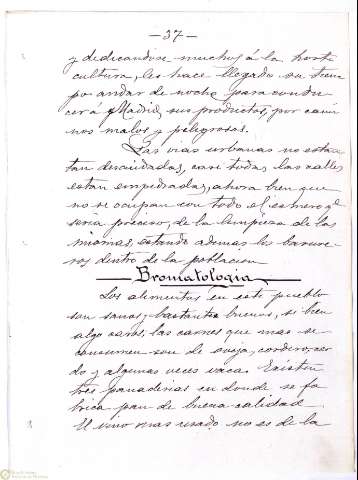 — 37 —
y dedicandose muchos á la horti
cultura, les hace llegado su tiem
po andar de noche para condu
cir á Madrid, sus productos, por cami
nos malos y peligrosos.
Las vias urbanas no estan
tan descuidadas, casi todas las calles
estan empedradas, ahora bien que
no se ocupan con todo el esmero q.
seria preciso, de la limpieza de las
mismas, estando ademas los basure
ros dentro de la poblacion
Bromatologia
Los alimentos en este pueblo
son sanos y bastante buenos, si bien
algo caros, las carnes que mas se
consumen son de oveja, cordero, cer
do y algunas veces vaca. Existen
tres panaderias en donde se fa
brica pan de buena calidad
El vino mas usado no es de la